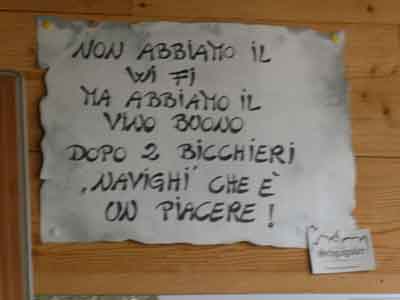 NON ABBIAMO IL
WI FI
MA ABBIAMO IL
VINO BUONO
DOPO 2 BICCHIERI
"NAVIGHI" CHE È
UN PIACERE!